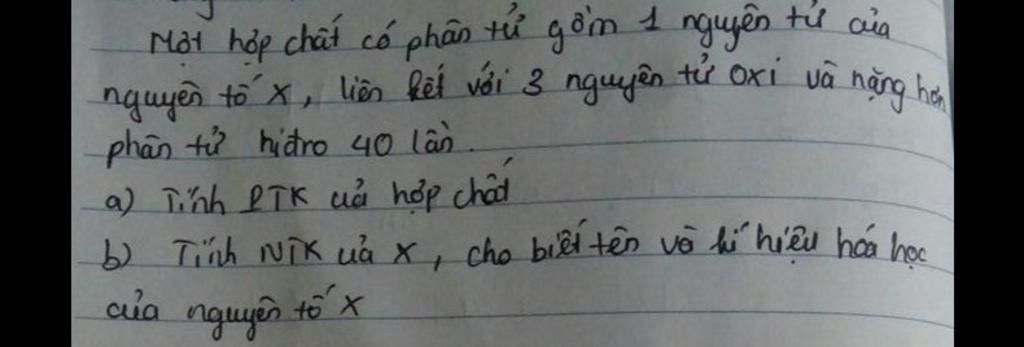 Một hợp chất có phân tử gồm 1 nguyên tử của
nguyên tố X, liên kết với 3 nguyên tử oxi và nặng hơn
phân tử hiđro 40 lần.
a) Tính PTK của hợp chất
b) Tính NTK của X, cho biết tên và kí hiệu hoá học
của nguyên tố X